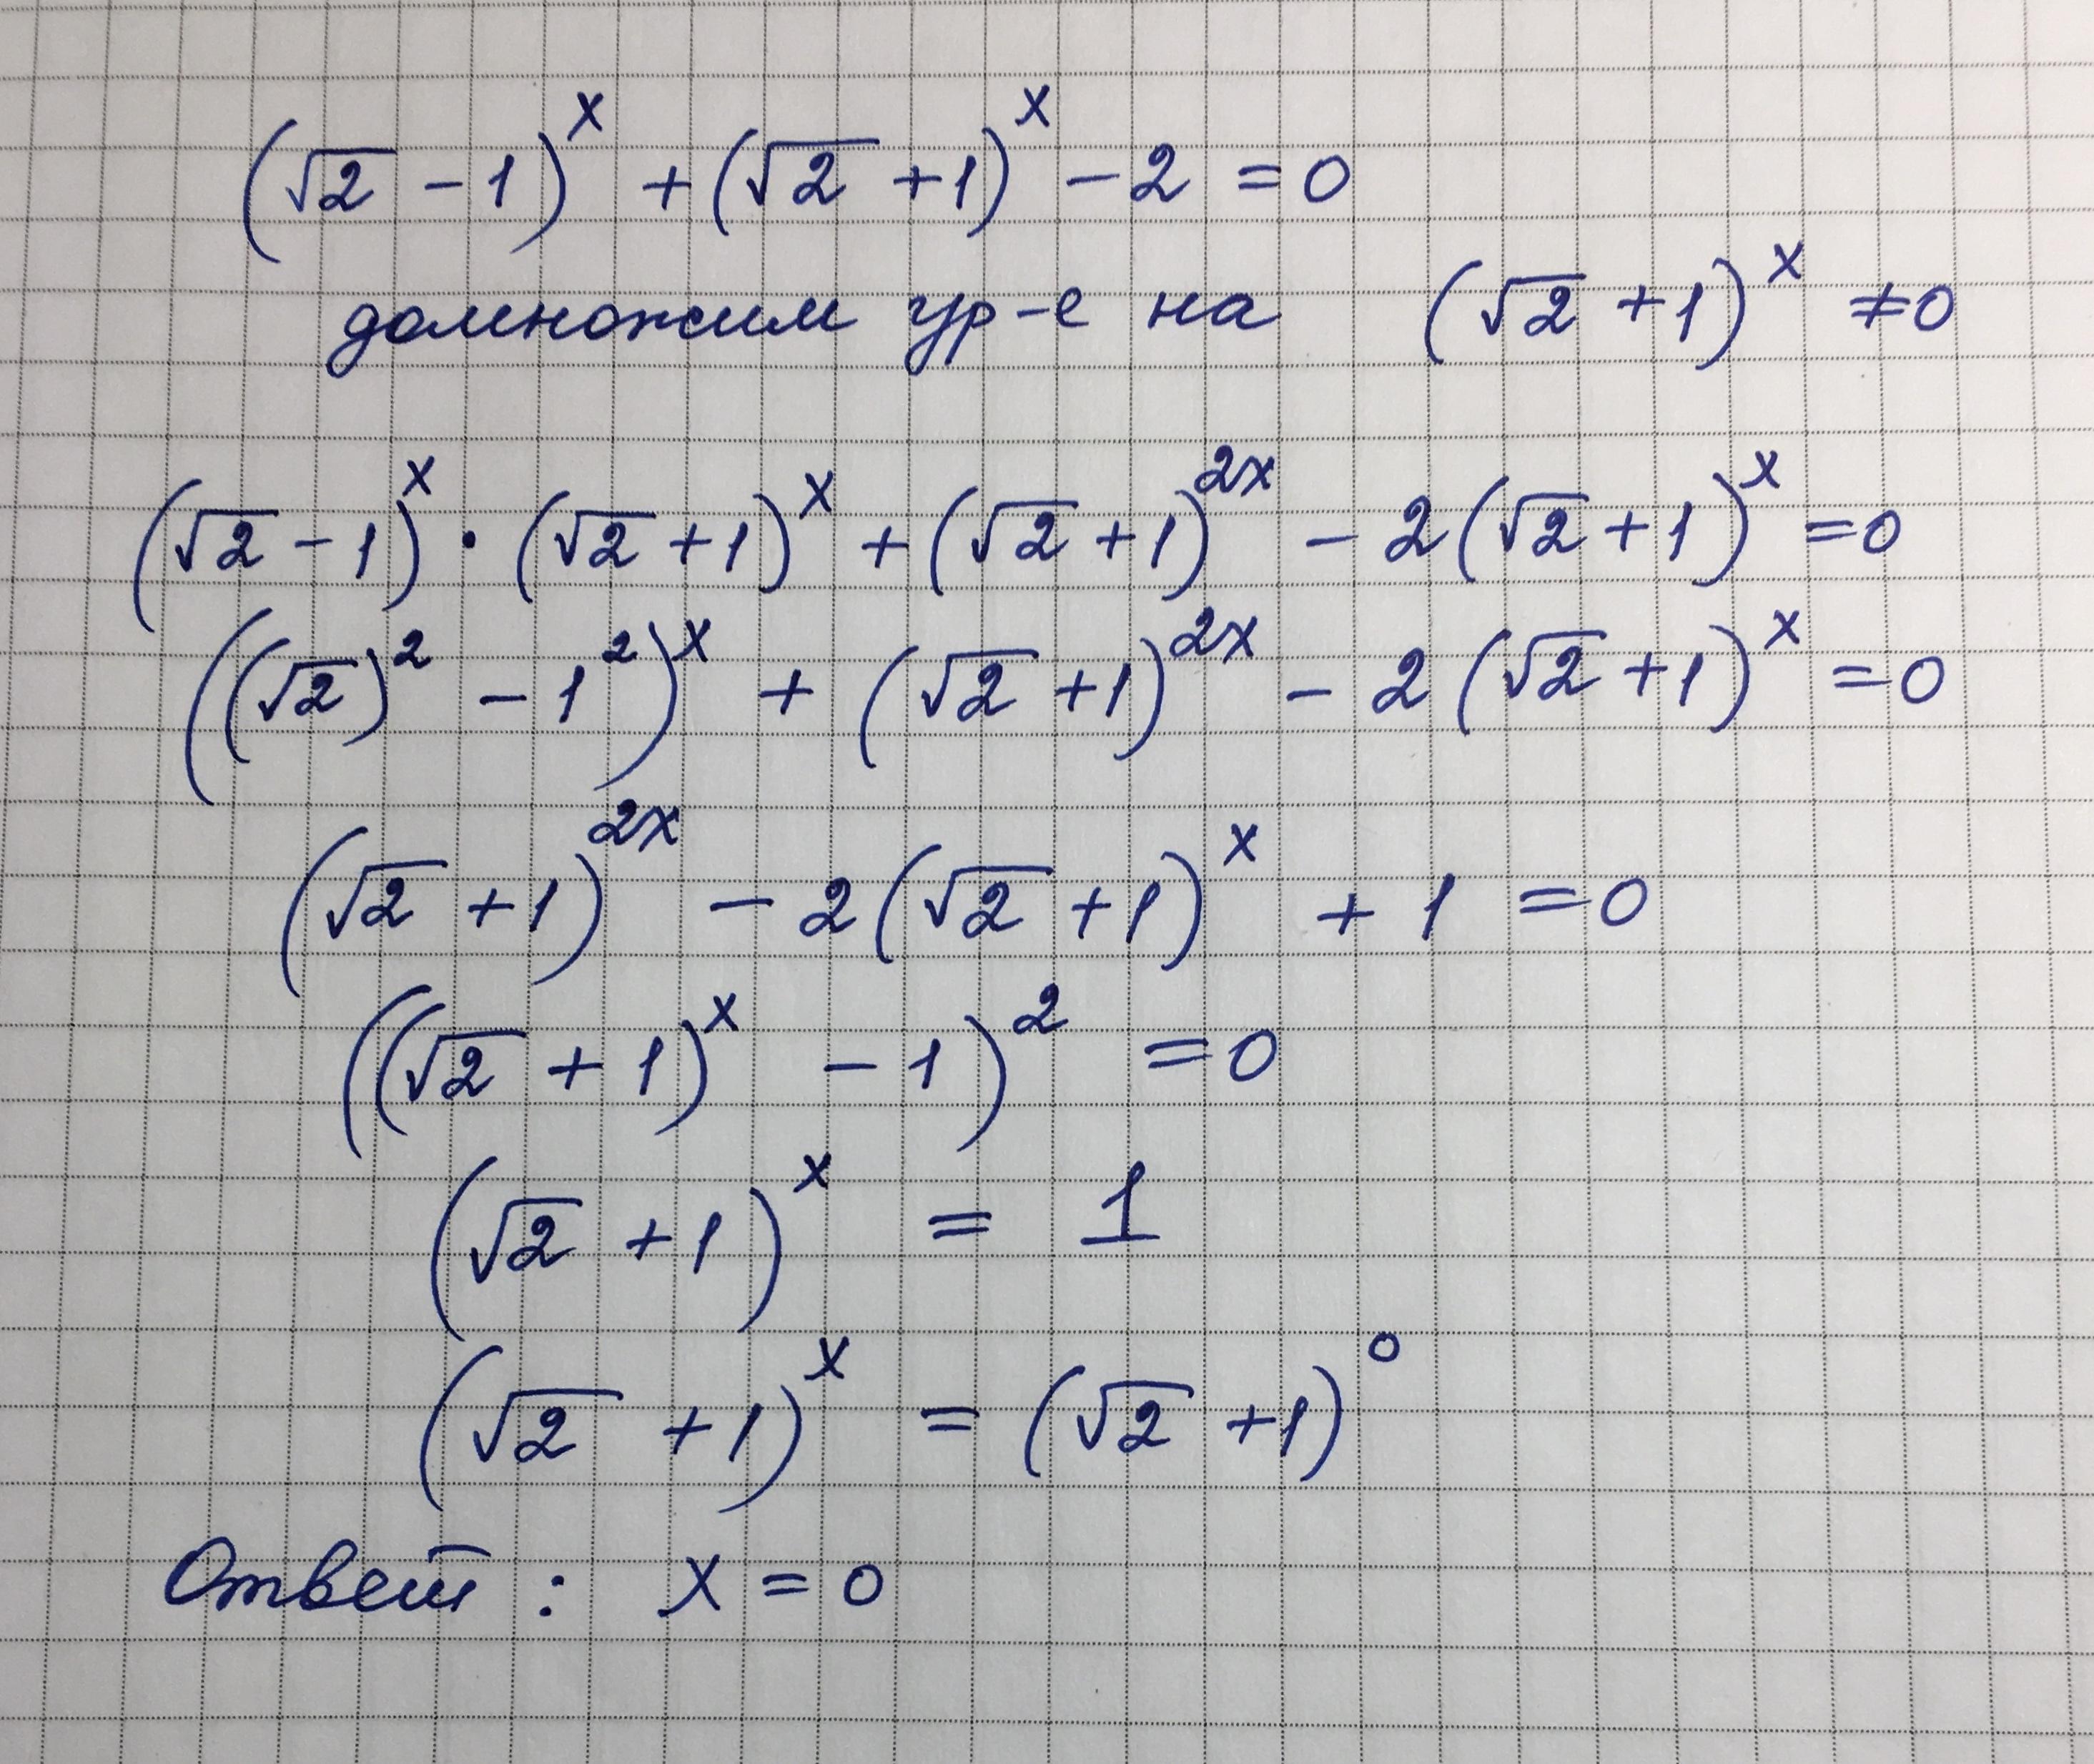 (√2 - 1)^x + (√2 + 1)^x - 2 = 0
домножим ур-е на (√2 + 1)^x ≠ 0
(√2 - 1)^x · (√2 + 1)^x + (√2 + 1)^2x - 2(√2 + 1)^x = 0
((√2)^2 - 1^2)^x + (√2 + 1)^2x - 2(√2 + 1)^x = 0
(√2 + 1)^2x - 2(√2 + 1)^x + 1 = 0
((√2 + 1)^x - 1)^2 = 0
(√2 + 1)^x = 1
(√2 + 1)^x = (√2 + 1)^0
Ответ: x = 0